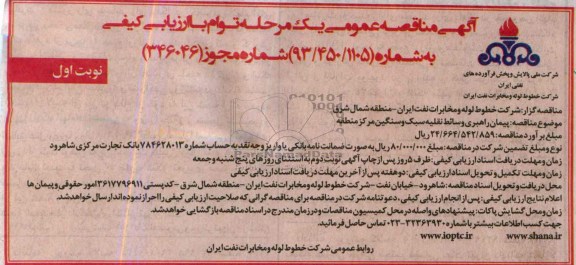 آگهی مناقصه عمومی یک مرحله توام با ارزیابی کیفی
به شماره (93/450/1105) شماره مجوز (346046)
نوبت اول
شرکت ملی پالایش و پخش فرآورده های
نفتی ایران
شرکت خطوط لوله و مخابرات نفت ایران
مناقصه گزار: شرکت خطوط لوله و مخابرات نفت ایران - منطقه شمال شرق
موضوع مناقصه: پیمان راهبری وسائط نقلیه سبک و سنگین مرکز منطقه
مبلغ برآورد مناقصه: 24/664/542/859 ریال
نوع و مبلغ تضمین شرکت در مناقصه: مبلغ 80/000/000 ریال به صورت ضمانت نامه بانکی یا واریز وجه نقد به حساب شماره 784628013 بانک تجارت مرکزی شاهرود
زمان و مهلت دریافت اسناد ارزیابی کیفی: ظرف 5 روز پس از چاپ آگهی نوبت دوم به استثنای روزهای پنج شنبه و جمعه
زمان و مهلت تکمیل و تحویل اسناد ارزیابی کیفی: دو هفته پس از آخرین مهلت دریافت اسناد ارزیابی کیفی
محل دریافت و تحویل اسناد مناقصه: شاهرود - خیابان نفت - شرکت خطوط لوله و مخابرات نفت ایران - منطقه شمال شرق - کدپستی 3617796911 امور حقوقی و پیمان ها
اعلام نتایج ارزیابی کیفی: پس از انجام ارزیابی کیفی، دعوتنامه شرکت در مناقصه برای مناقصه گرانی که صلاحیت ارزیابی کیفی را احراز نموده اند ارسال خواهد شد.
زمان و محل گشایش پاکات: پیشنهادهای واصله در محل کمیسیون مناقصات و در زمان مندرج در اسناد مناقصه بازگشایی خواهد شد.
جهت کسب اطلاعات بیشتر با شماره 32363930-023 تماس حاصل فرمائید.
www.shana.ir www.ioptc.ir
روابط عمومی شرکت خطوط لوله و مخابرات نفت ایران